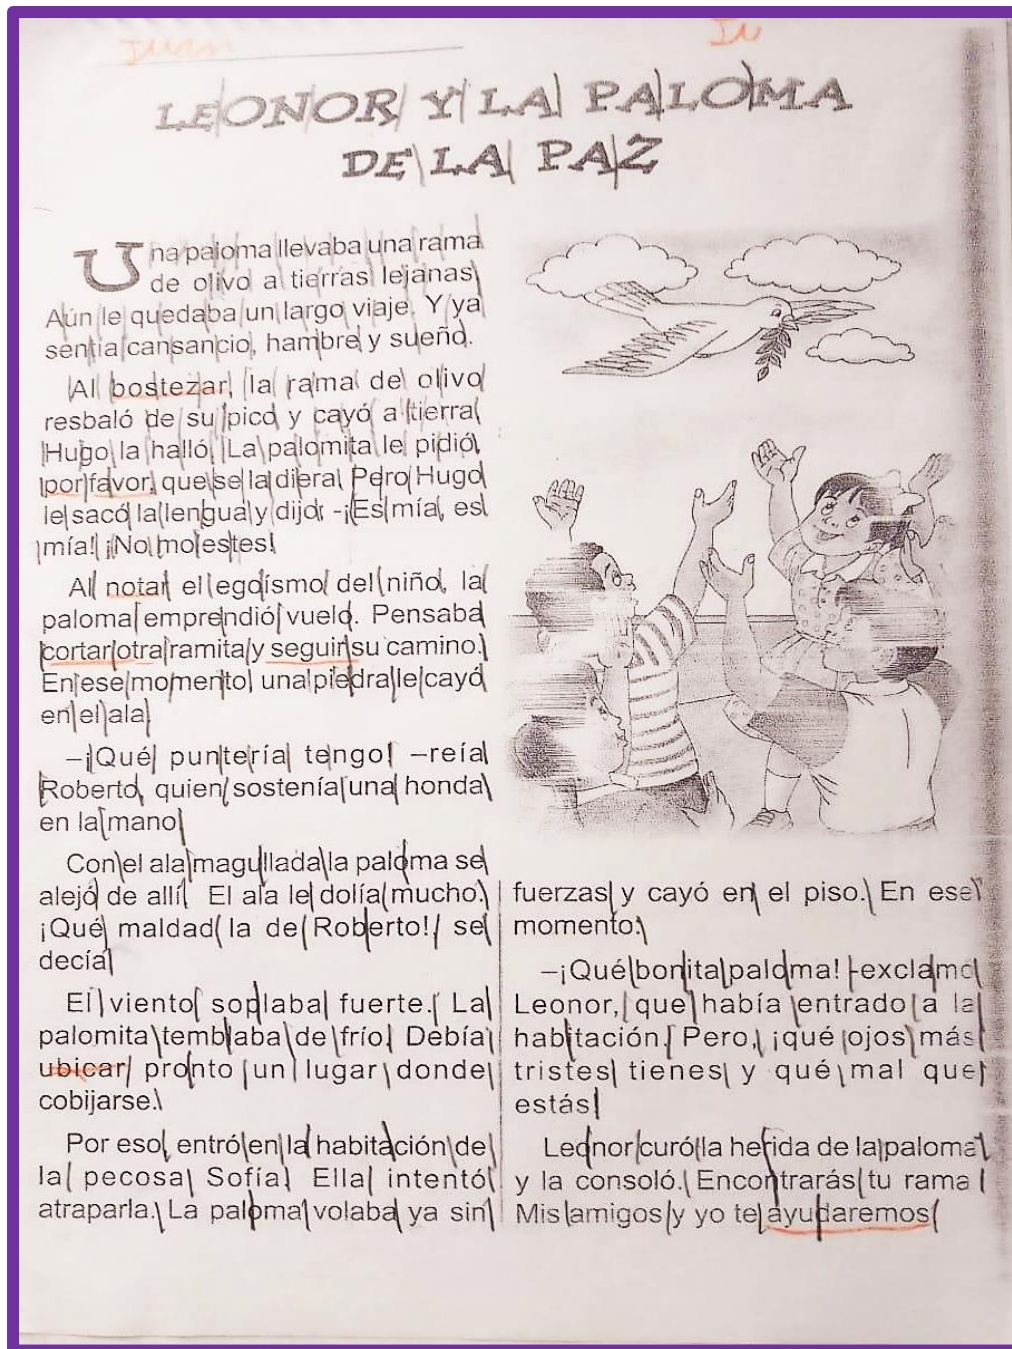 Juan
Ju
LEONOR Y LA PALOMA
DE LA PAZ
Una paloma llevaba una rama
de olivo a tierras lejanas.
Aún le quedaba un largo viaje. Y ya
sentía cansancio, hambre y sueño.
Al bostezar, la rama de olivo
resbaló de su pico y cayó a tierra.
Hugo la halló. La palomita le pidió,
por favor, que se la diera. Pero Hugo
le sacó la lengua y dijo: -¡Es mía, es
mía! ¡No molestes!
Al notar el egoísmo del niño, la
paloma emprendió vuelo. Pensaba
cortar otra ramita y seguir su camino.
En ese momento, una piedra le cayó
en el ala.
–¡Qué puntería tengo! –reía
Roberto, quien sostenía una honda
en la mano.
Con el ala magullada la paloma se
alejó de allí. El ala le dolía mucho.
¡Qué maldad la de Roberto!, se
decía.
El viento soplaba fuerte. La
palomita temblaba de frío. Debía
ubicar pronto un lugar donde
cobijarse.
Por eso, entró en la habitación de
la pecosa Sofía. Ella intentó
atraparla. La paloma volaba ya sin
fuerzas y cayó en el piso. En ese
momento:
–¡Qué bonita paloma! –exclamó
Leonor, que había entrado a la
habitación. Pero, ¡qué ojos más
tristes tienes y qué mal que
estás!
Leonor curó la herida de la paloma
y la consoló. Encontrarás tu rama.
Mis amigos y yo te ayudaremos.